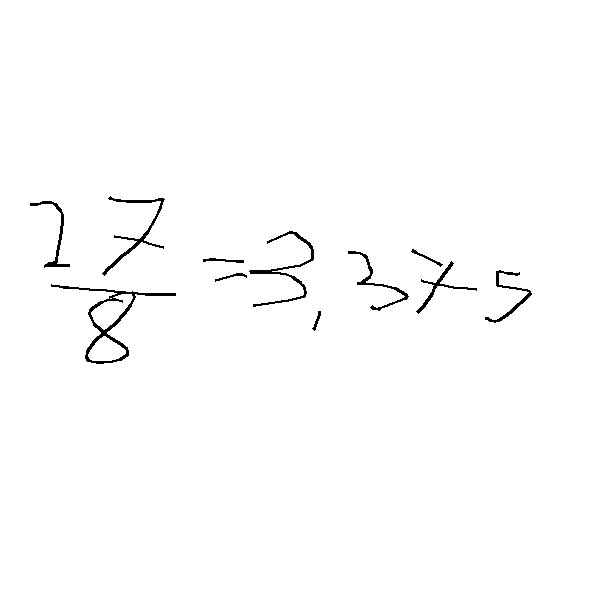 27/8 = 3,375